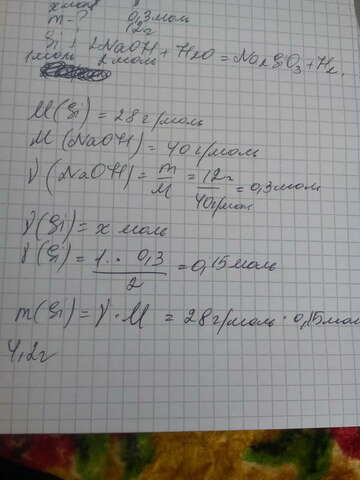 x моль 0,3 моль
m - ? 12г
Si + 2NaOH + H2O = Na2SiO3 + H2.
1 моль 2 моль
M(Si) = 28 г/моль
M(NaOH) = 40 г/моль
ν(NaOH) = m/M = 12г/40г/моль = 0,3 моль
ν(Si) = x моль
ν(Si) = 1 · 0,3/2 = 0,15 моль
m(Si) = ν · M = 28 г/моль · 0,15 моль
4,2г